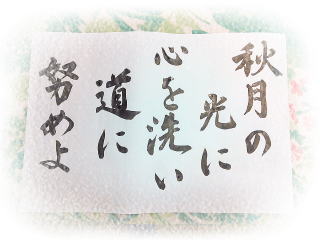 秋月の
光に
心を洗い
道に
努めよ